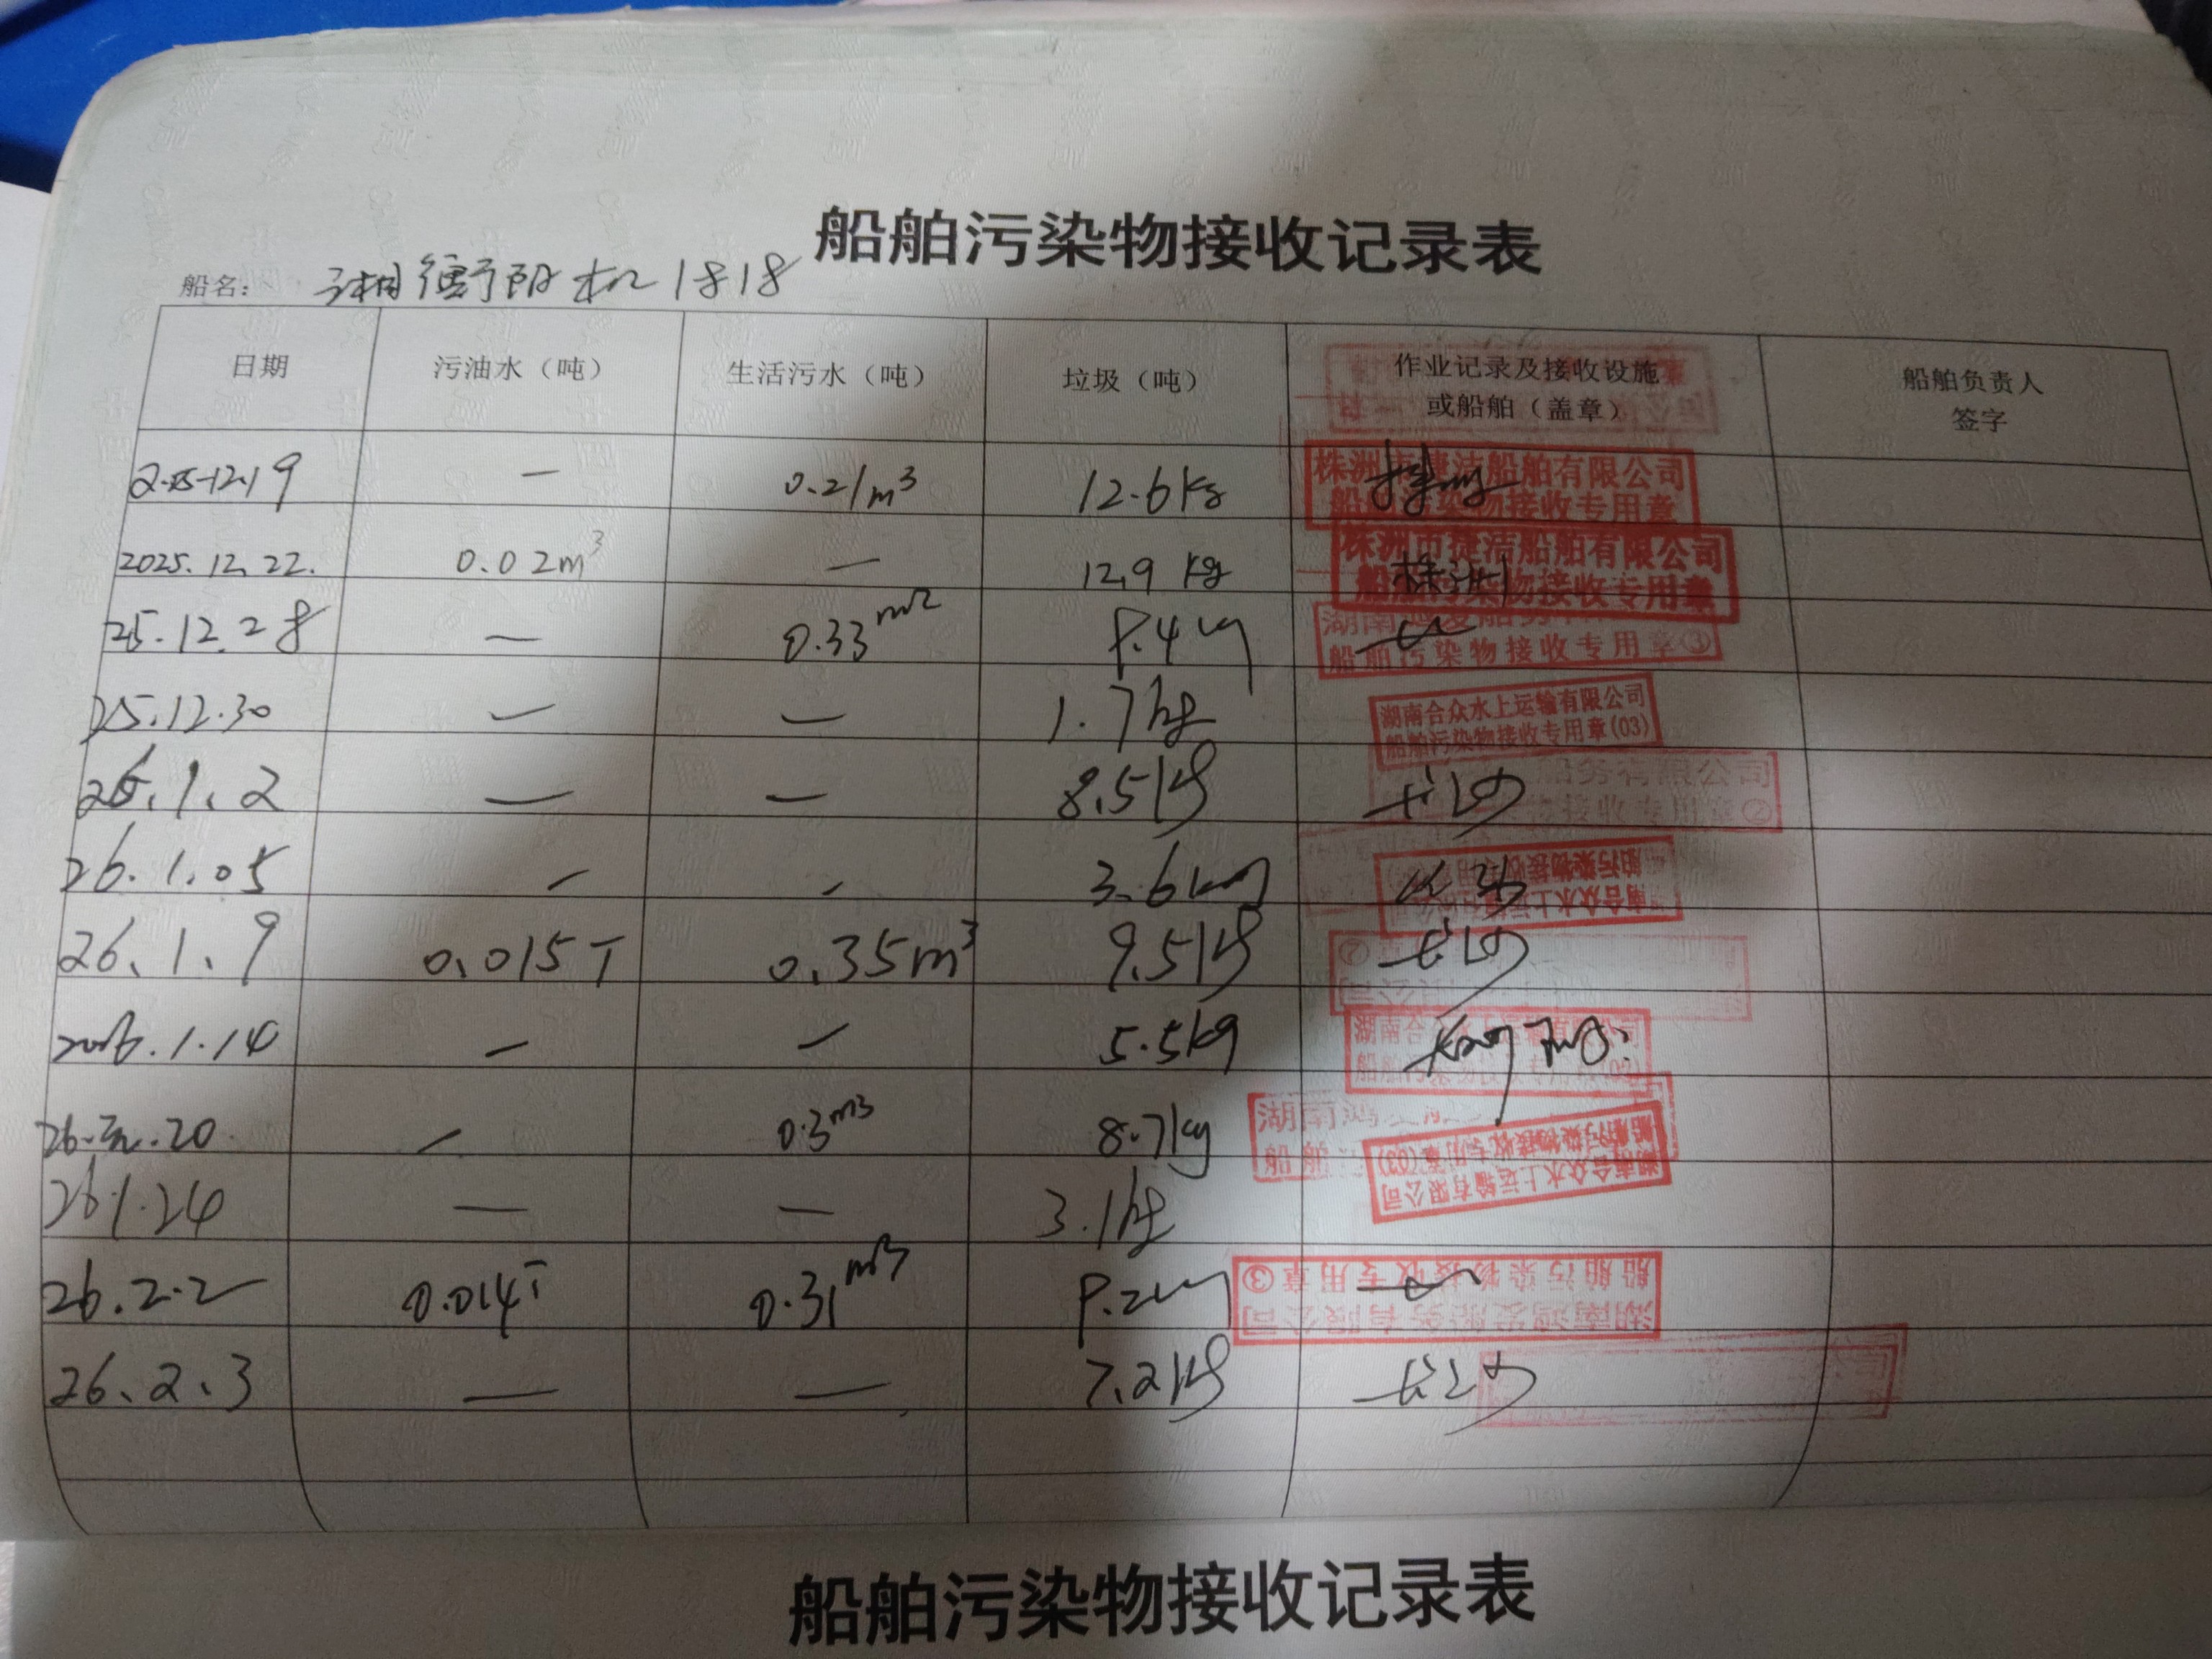 船舶污染物接收记录表
船名： 湘衡阳机1818
日期 污油水（吨） 生活污水（吨） 垃圾（吨） 作业记录及接收设施或船舶（盖章） 船舶负责人签字
2025-12.19 — 0.21m³ 12.6kg 株洲市捷洁船舶有限公司 船舶污染物接收专用章
2025.12.22. 0.02m³ — 12.9 kg 株洲 株洲市捷洁船舶有限公司 船舶污染物接收专用章
25.12.28 — 0.33 8.4kg 船舶污染物接收专用章③
25.12.30 — — 1.7kg 湖南合众水上运输有限公司 船舶污染物接收专用章(03)
26.1.2 — — 8.5kg 船务有限公司 接收专用章②
26.1.05 — — 3.6kg
26.1.9 0.015T 0.35m³ 9.5kg
2026.1.14 — — 5.5kg
26.元.20 — 0.3m3 8.7kg
26.1.24 — — 3.1kg 湖南合众水上运输有限公司 船舶污染物接收专用章(03)
26.2.2 0.014T 0.31m3 8.2kg 船舶污染物接收专用章③
26.2.3 — — 7.2kg
船舶污染物接收记录表